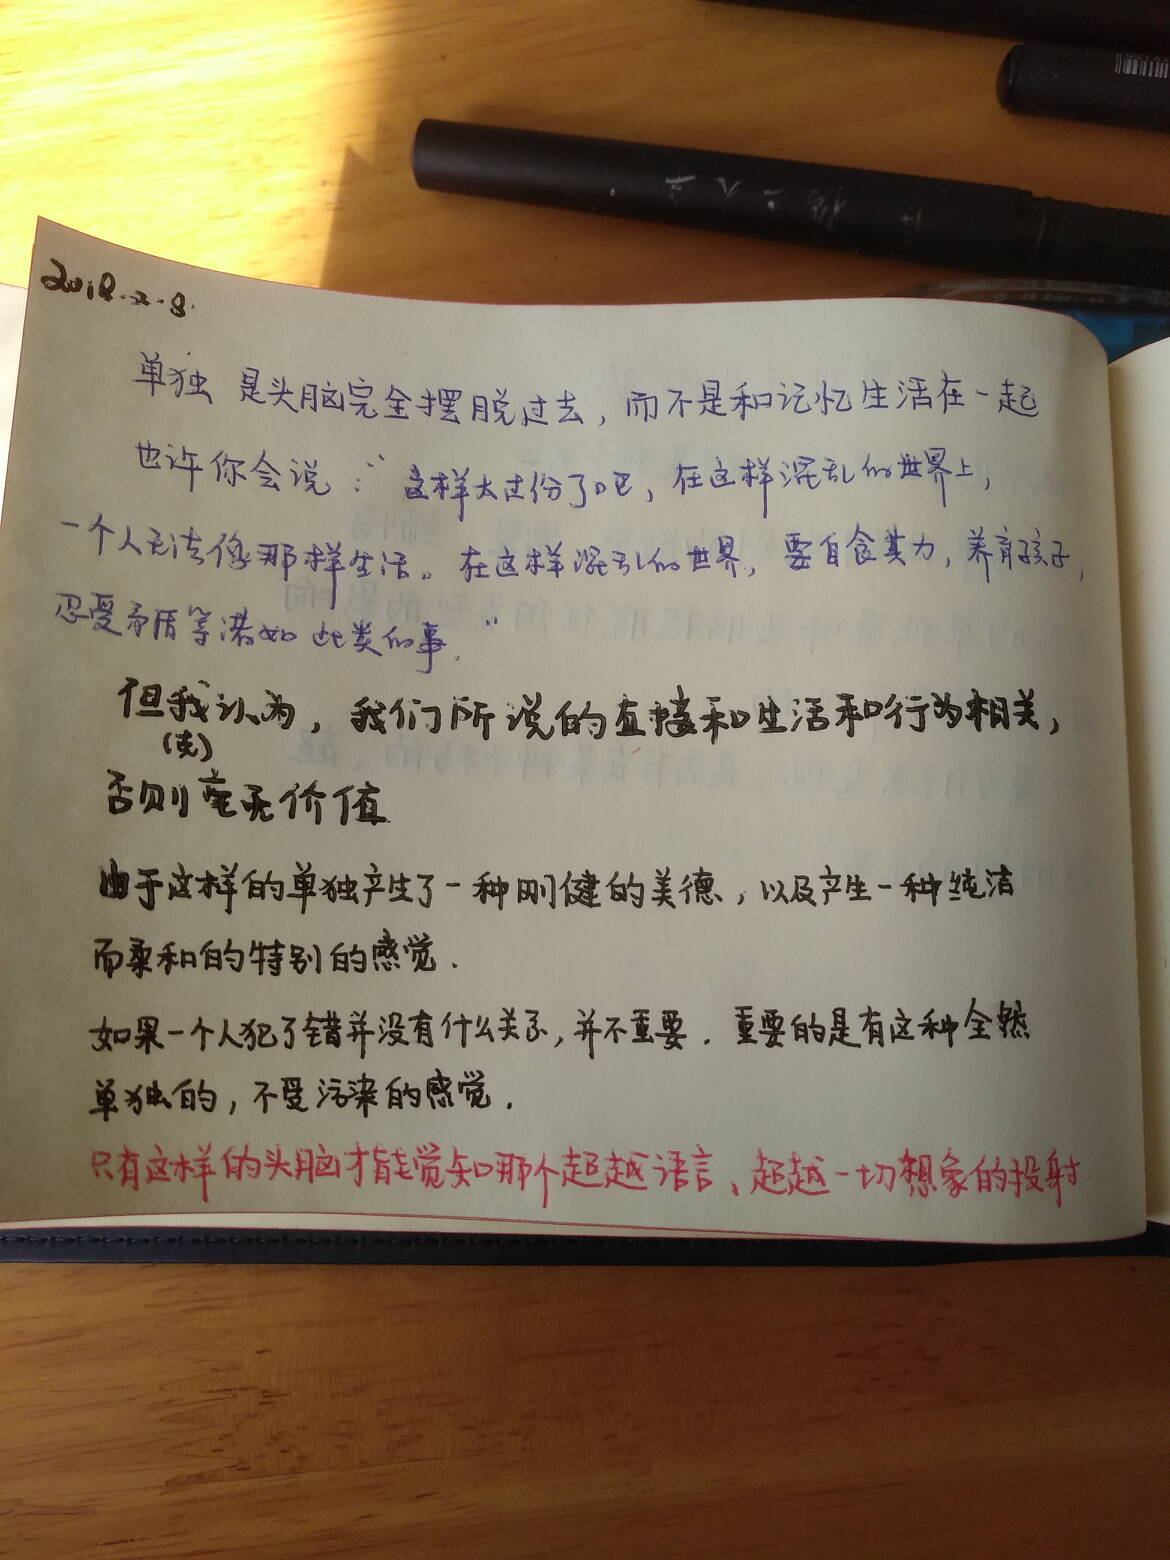 2018.2.8.
单独 是头脑完全摆脱过去，而不是和记忆生活在一起
也许你会说：“这样太过份了吧，在这样混乱的世界上，
一个人无法像那样生活。在这样混乱的世界，要自食其力，养育孩子，
忍受矛盾等诸如此类的事.”
但我认为，我们所说的直接和生活和行为相关，
(克)
否则毫无价值
由于这样的单独产生了一种刚健的美德，以及产生一种纯洁
而柔和的特别的感觉.
如果一个人犯了错并没有什么关系，并不重要. 重要的是有这种全然
单独的，不受污染的感觉.
只有这样的头脑才能觉知那个超越语言、超越一切想象的投射